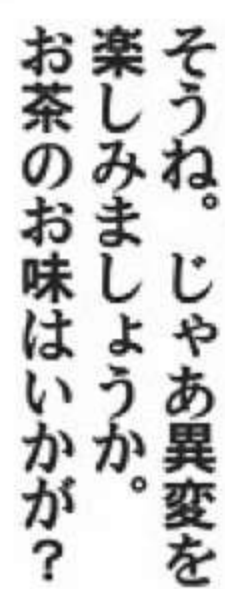 そうね。じゃあ異変を
楽しみましょうか。
お茶のお味はいかが？